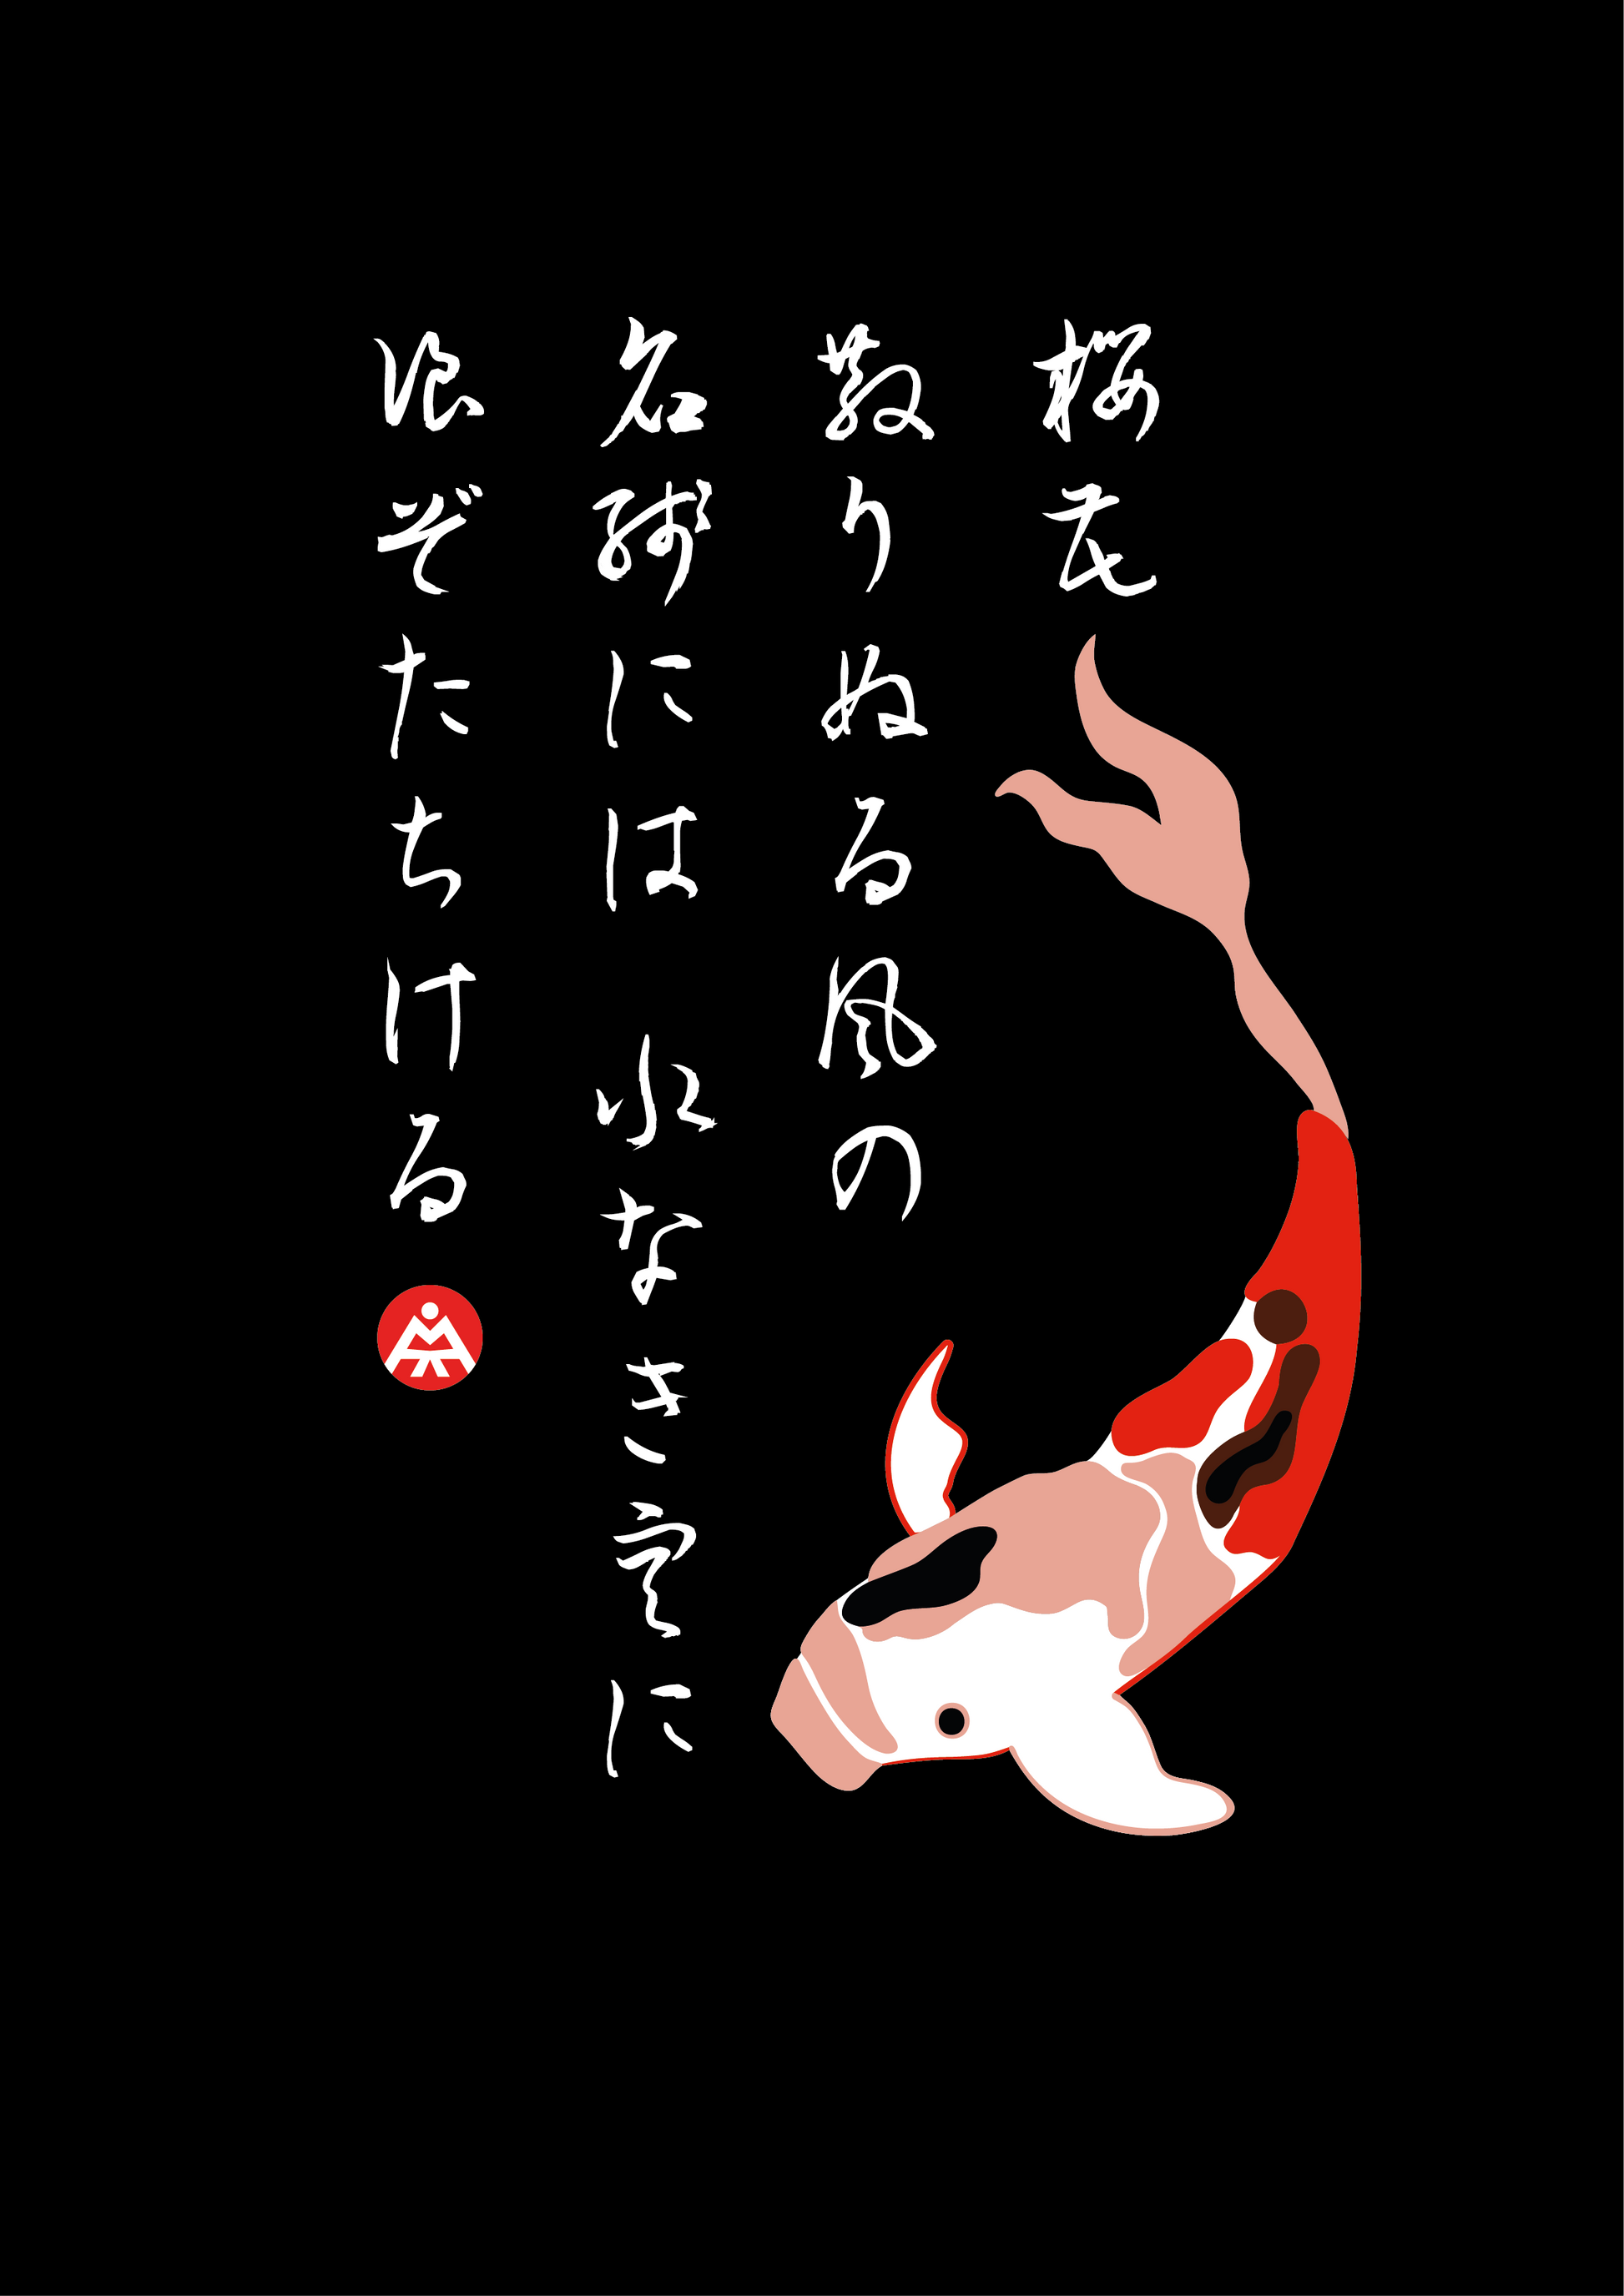 桜花
散りぬる風の
名残には　水なき空に
波ぞたちける